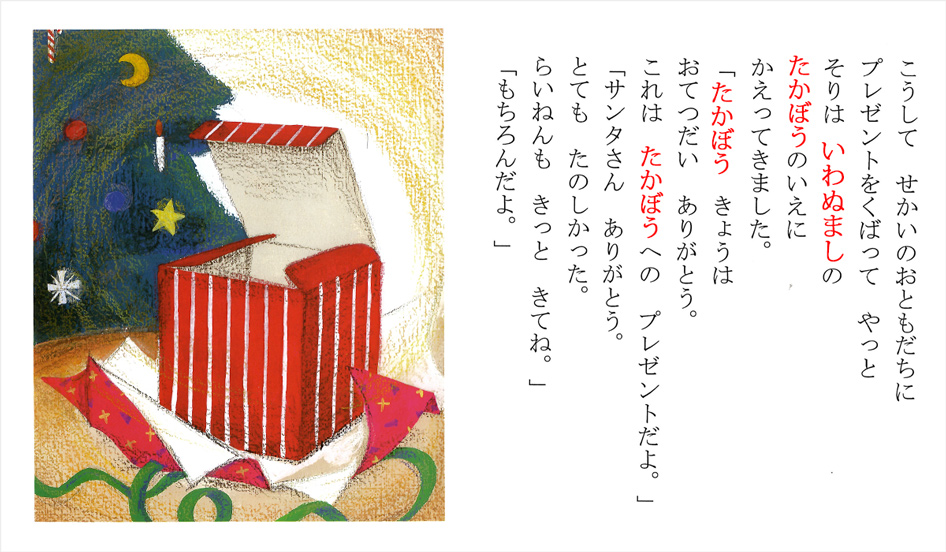 こうして　せかいのおともだちに
プレゼントをくばって　やっと
そりは　いわぬましの
たかぼうのいえに
かえってきました。
「たかぼう　きょうは
おてつだい　ありがとう。
これは　たかぼうへの　プレゼントだよ。」
「サンタさん　ありがとう。
とても　たのしかった。
らいねんも　きっと　きてね。」
「もちろんだよ。」